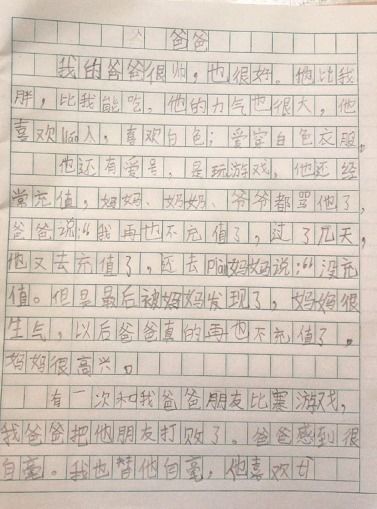 爸爸
我的爸爸很帅，也很好。他比我
胖，比我能吃，他的力气也很大，他
喜欢liáo人，喜欢白色；爱穿白色衣服。
他还有爱号，是玩游戏，他还经
常充值，妈妈、奶奶、爷爷都骂他了，
爸爸说：“我再也不充值了，过了几天，
他又去充值了，还去piàn妈妈说：“没充
值。但是最后被妈妈发现了，妈妈很
生气，以后爸爸真的再也不充值了。
妈妈很高兴。
有一次和我爸爸朋友比赛游戏，
我爸爸把他朋友打败了。爸爸感到很
自毫。我也替他自毫，他喜欢